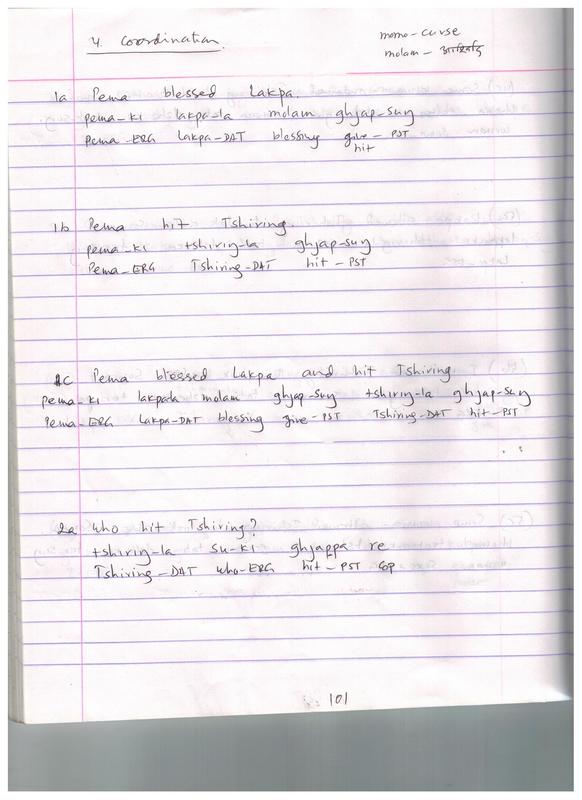 4. Coordination
momo - curse
molam - आशिर्वाद
1a Pema blessed Lakpa.
pema-ki lakpa-la molam ghjap-suŋ
Pema-ERG Lakpa-DAT blessing give-PST
hit
1b Pema hit Tshiring
pema-ki tshiriŋ-la ghjap-suŋ
Pema-ERG Tshiring-DAT hit-PST
1c Pema blessed Lakpa and hit Tshiring
pema-ki lakpala molam ghjap-suŋ tshiriŋ-la ghjap-suŋ
Pema-ERG Lakpa-DAT blessing give-PST Tshiring-DAT hit-PST
2a who hit Tshiring?
tshiriŋ-la su-ki ghjappa re
Tshiring-DAT who-ERG hit-PST cop
101